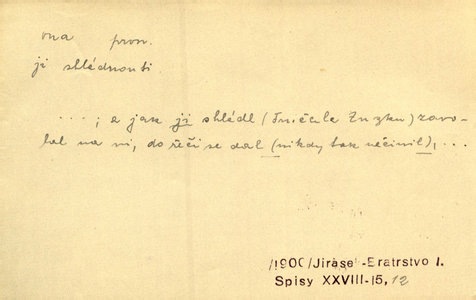 ona pron.
ji shlédnouti.
...; a jak ji shlédl (Trnčale Zuzku) zavo-
lal na ni, do řeči se dal (nikdy tak nečinil), ...
/1900/Jirásek-Bratrstvo I.
Spisy XXVIII-15, 12